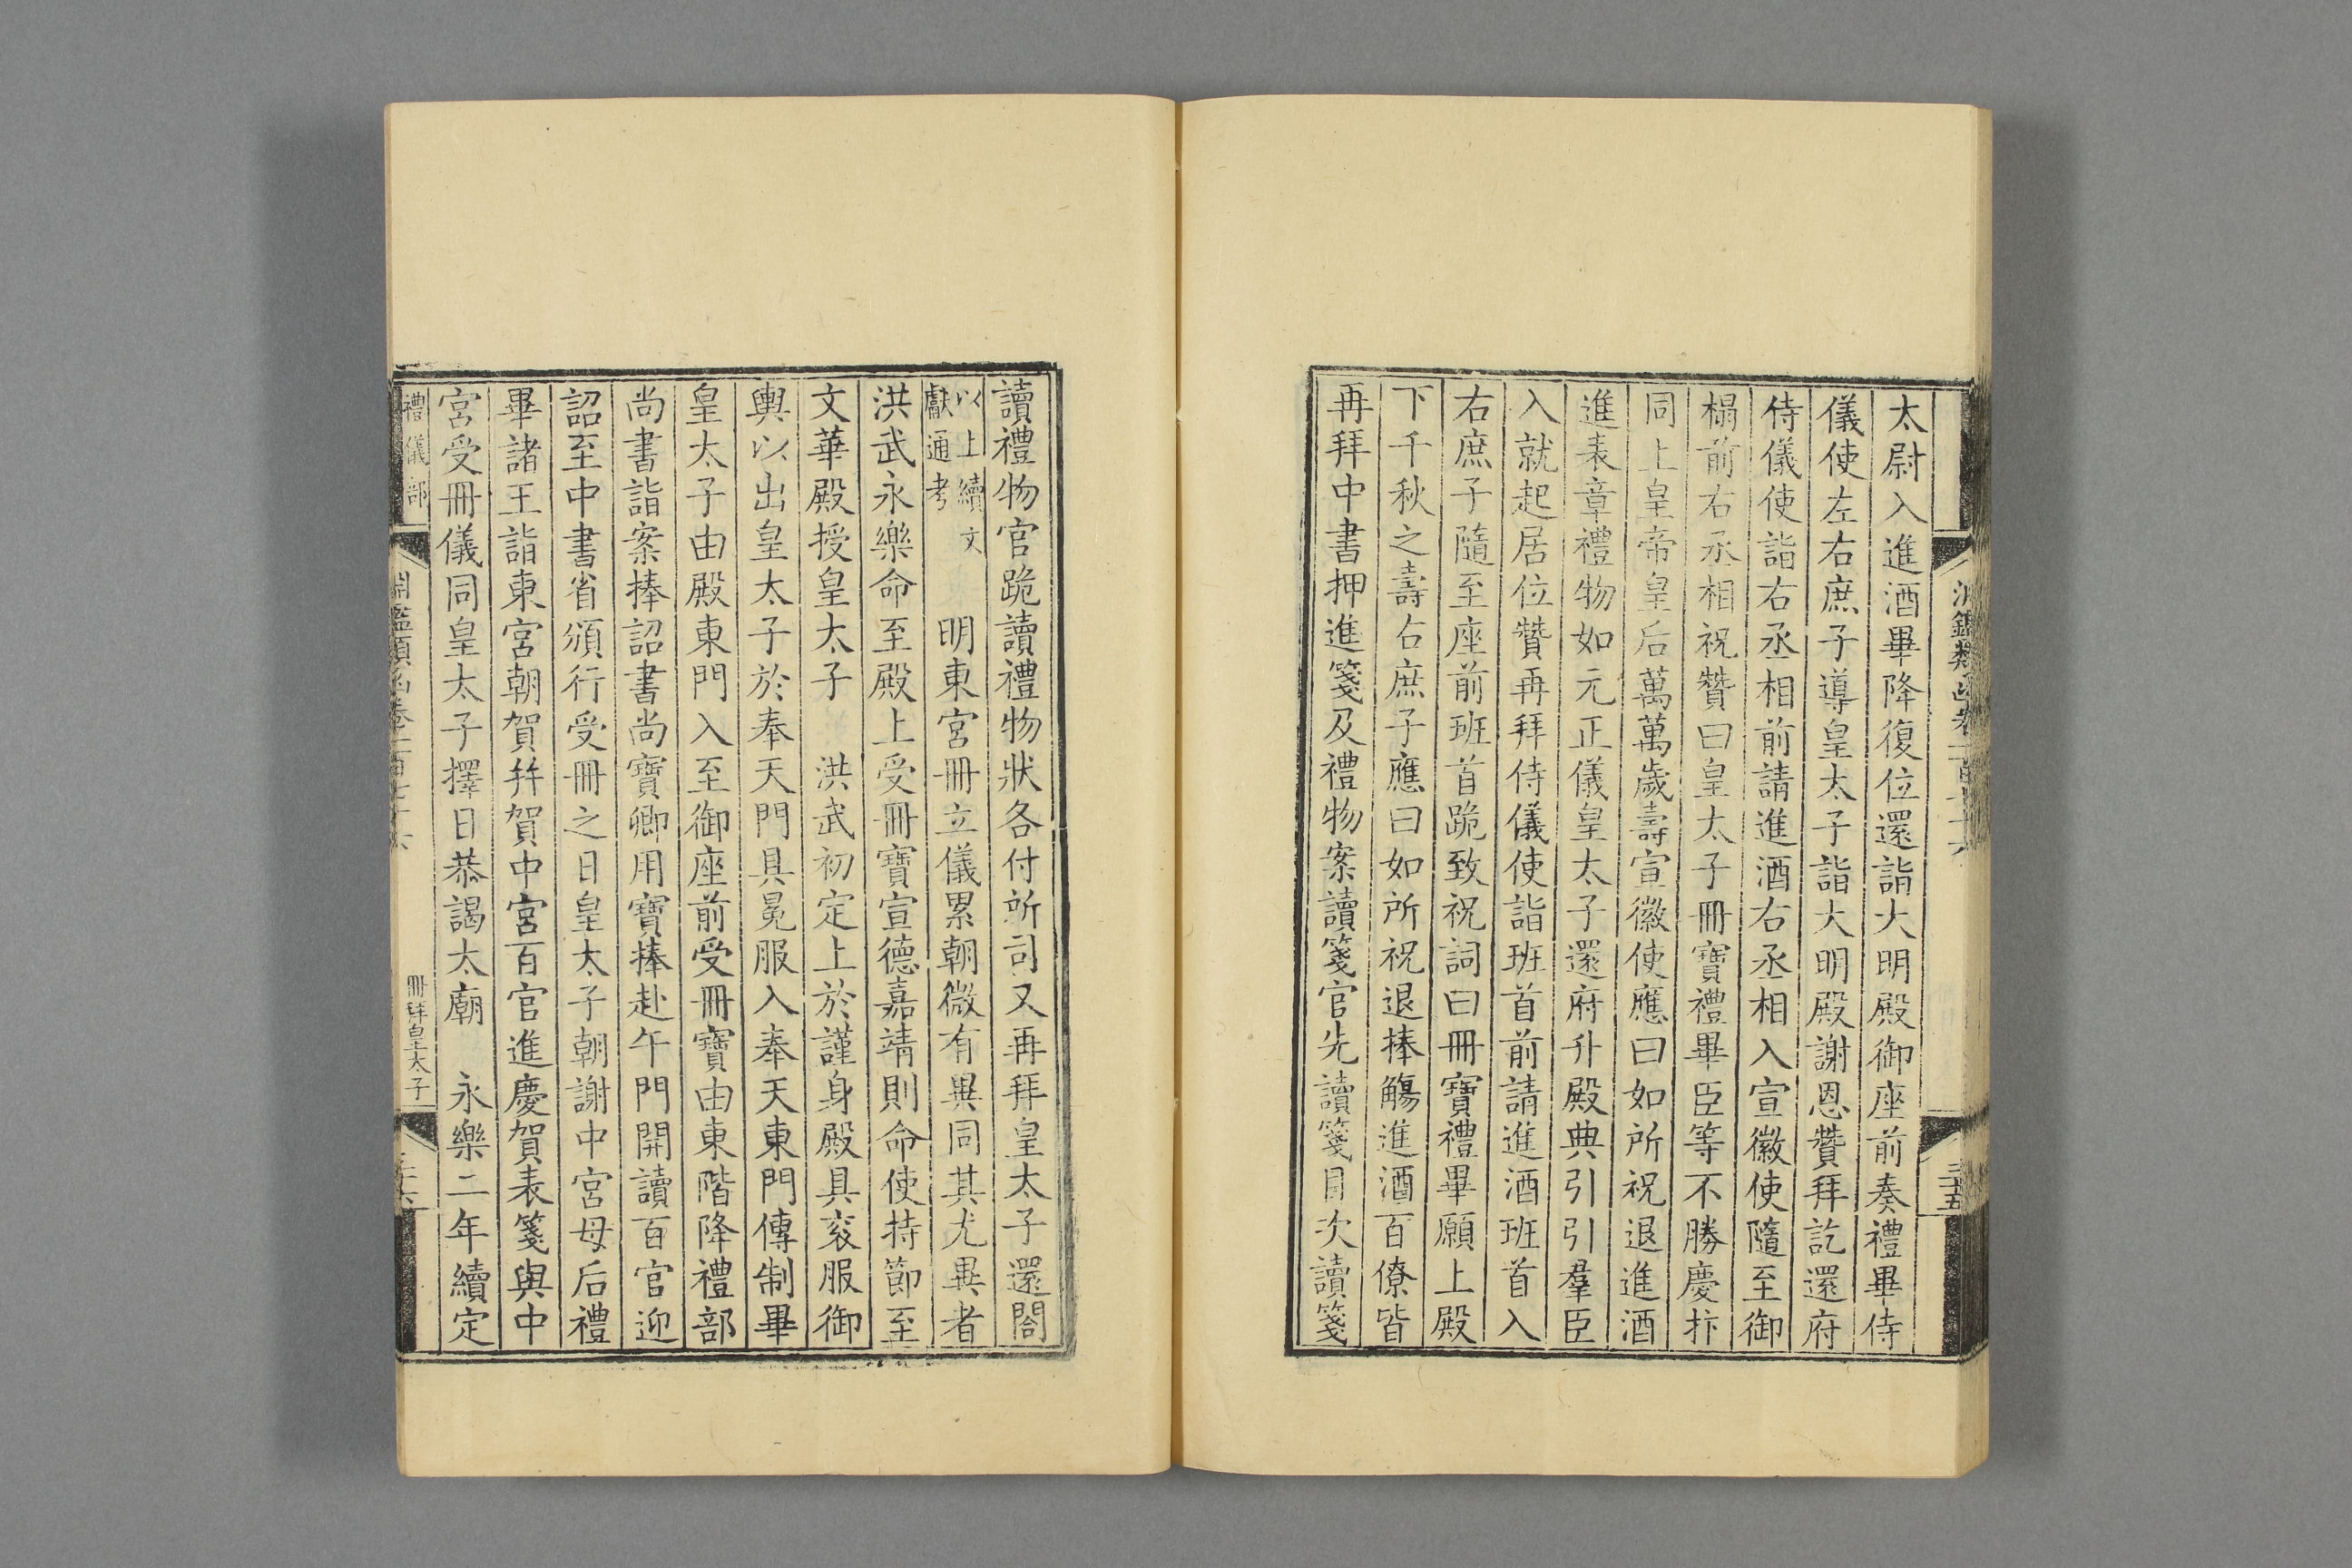 太尉入進酒畢降復位還詣大明殿御座前奏禮畢侍
儀使左右庶子導皇太子詣大明殿謝恩贊拜訖還府
侍儀使詣右丞相前請進酒右丞相入宣徽使隨至御
榻前右丞相祝贊曰皇太子冊寶禮畢臣等不勝慶抃
同上皇帝皇后萬萬歲壽宣徽使應曰如所祝退進酒
進表章禮物如元正儀皇太子還府升殿典引引羣臣
入就起居位贊再拜侍儀使詣班首前請進酒班首入
右庶子隨至座前班首跪致祝詞曰冊寶禮畢願上殿
下千秋之壽右庶子應曰如所祝退捧觴進酒百僚皆
再拜中書押進箋及禮物案讀箋官先讀箋目次讀箋
讀禮物官跪讀禮物狀各付所司又再拜皇太子還閤
以上續文
獻通考
明東宮冊立儀累朝微有異同其尤異者
洪武永樂命至殿上受冊寶宣德嘉靖則命使持節至
文華殿授皇太子 洪武初定上於謹身殿具袞服御
輿以出皇太子於奉天門具冕服入奉天東門傳制畢
皇太子由殿東門入至御座前受冊寶由東階降禮部
尚書詣案捧詔書尚寶卿用寶捧赴午門開讀百官迎
詔至中書省頒行受冊之日皇太子朝謝中宮母后禮
畢諸王詣東宮朝賀幷賀中宮百官進慶賀表箋與中
宮受冊儀同皇太子擇日恭謁太廟 永樂二年續定
禮儀部
冊拜皇太子